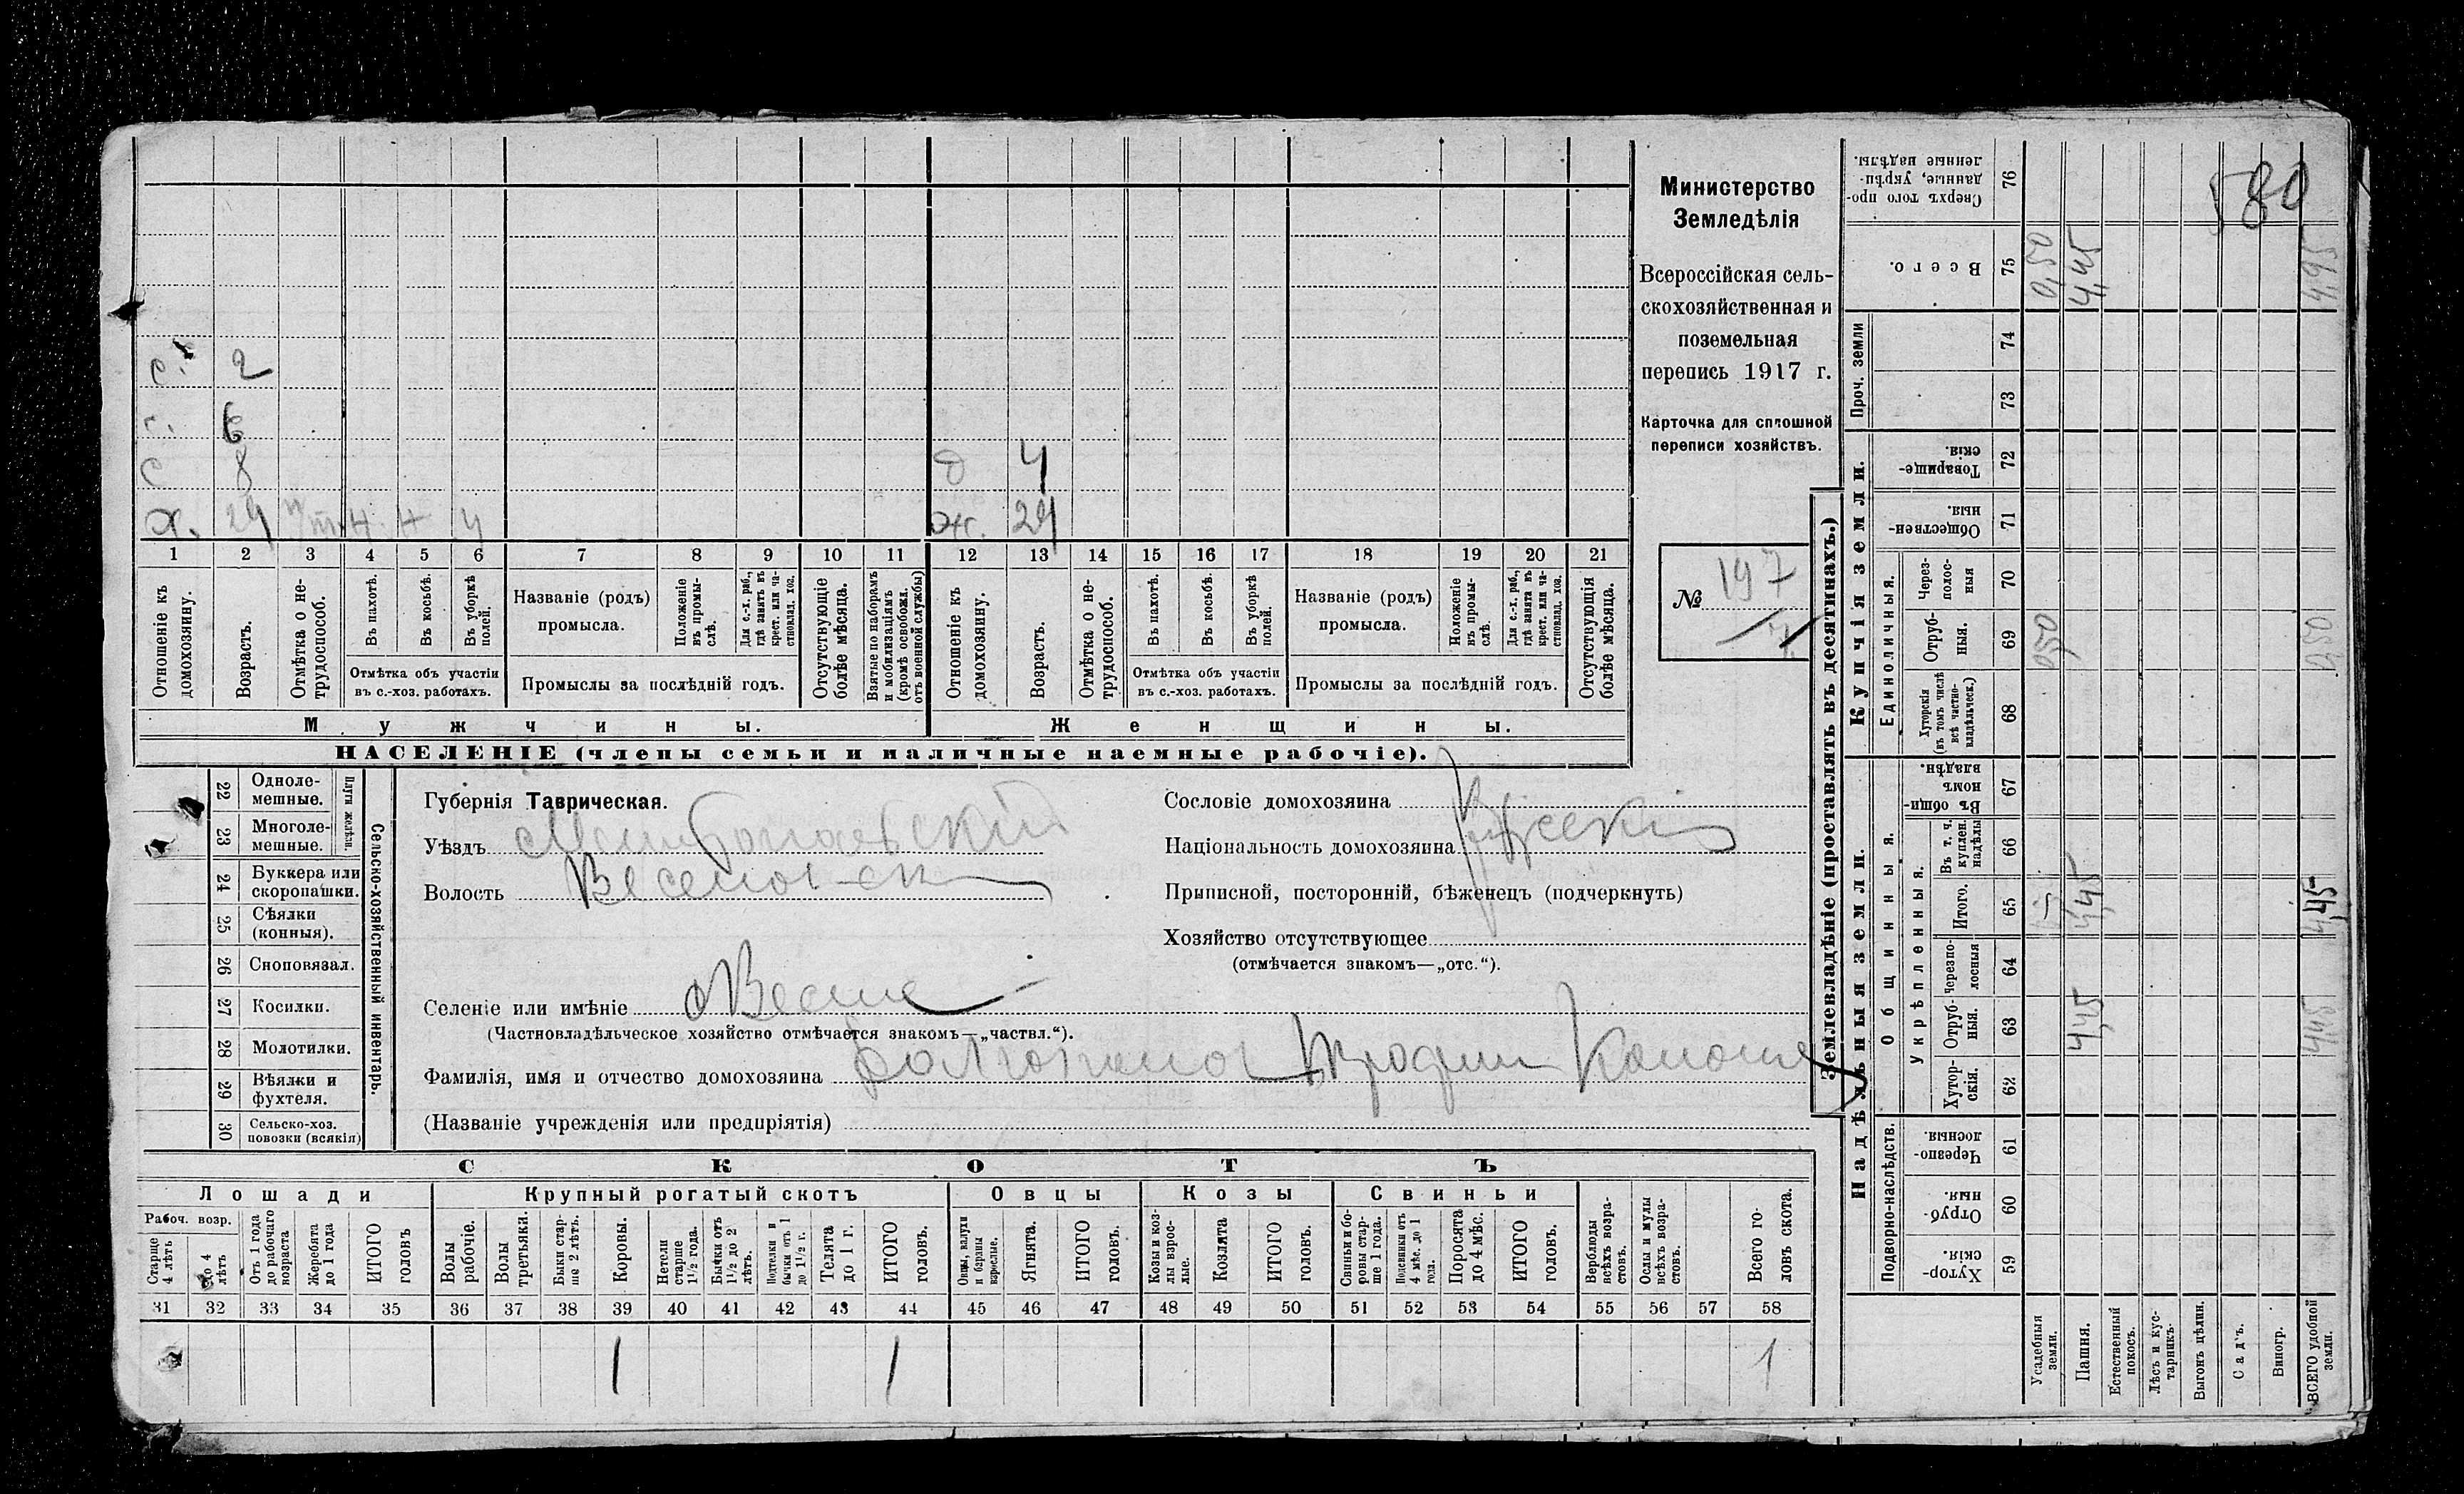 580
Министерство
Земледѣлія
Всероссійская сель-
скохозяйственная и
поземельная
перепись 1917 г.
Карточка для сплошной
переписи хозяйствъ.
№ 197
7
с. 2
с. 6
с 8
х. 29
д 4
ж. 29
1 2 3 4 5 6 7 8 9 10 11 12 13 14 15 16 17 18 19 20 21
Отношеніе къ домохозяину.
Возрастъ.
Отмѣтка о не-трудоспособ.
Въ пахотѣ.
Въ косьбѣ.
Въ уборкѣ полей.
Отмѣтка объ участіи
въ с.-хоз. работахъ.
Названіе (родъ)
промысла.
Положеніе въ промы-слѣ.
Для с.-х. раб., гдѣ занятъ въ крест. или ча-стновлад. хоз.
Промыслы за послѣдній годъ.
Отсутствующіе болѣе мѣсяца.
Взятые по наборамъ и мобилизаціямъ (кромѣ освобожд. отъ военной службы)
Отношеніе къ домохозяину.
Возрастъ.
Отмѣтка о не-трудоспособ.
Въ пахотѣ.
Въ косьбѣ.
Въ уборкѣ полей.
Отмѣтка объ участіи
въ с.-хоз. работахъ.
Названіе (родъ)
промысла.
Положеніе въ промы-слѣ.
Для с.-х. раб., гдѣ занята въ крест. или ча-стновлад. хоз.
Промыслы за послѣдній годъ.
Отсутствующія болѣе мѣсяца.
Мужчины.
Женщины.
НАСЕЛЕНІЕ (члены семьи и наличные наемные рабочіе).
22 Одноле-мешные.
23 Многоле-мешные.
Плуги желѣзн.
24 Буккера или скоропашки.
25 Сѣялки (конныя).
26 Сноповязал.
27 Косилки.
28 Молотилки.
29 Вѣялки и фухтеля.
30 Сельско-хоз. повозки (всякія)
Сельско-хозяйственный инвентарь.
Губернія Таврическая.
Уѣздъ Мелитопольскій
Волость Веселовск
Селеніе или имѣніе с Весело
(Частновладѣльческое хозяйство отмѣчается знакомъ—„частвл.“).
Фамилія, имя и отчество домохозяина
(Названіе учрежденія или предпріятія)
Сословіе домохозяина
Національность домохозяина
Приписной, посторонній, бѣженецъ (подчеркнуть)
Хозяйство отсутствующее
(отмѣчается знакомъ—„отс.“).
СКОТЪ
Лошади Крупный рогатый скотъ Овцы Козы Свиньи
Рабоч. возр.
Старше 4 лѣтъ
До 4 лѣтъ
Отъ 1 года до рабочаго возраста
Жеребята до 1 года
ИТОГО головъ
Волы рабочіе.
Волы третьяки.
Быки стар-ше 2 лѣтъ.
Коровы.
Нетели старше 1½ года.
Бычки отъ 1½ до 2 лѣтъ.
Подтелки и бычки отъ 1 до 1½ г.
Телята до 1 г.
ИТОГО головъ.
Овцы, валухи и бараны взрослые.
Ягнята.
ИТОГО головъ.
Козы и коз-лы взрос-лые.
Козлята
ИТОГО головъ.
Свиньи и бо-ровы стар-ше 1 года.
Подсвинки отъ 4 мѣс. до 1 года.
Поросята до 4 мѣс.
ИТОГО головъ.
Верблюды всѣхъ возра-стовъ.
Ослы и мулы всѣхъ возра-стовъ.
Всего го-ловъ скота.
31 32 33 34 35 36 37 38 39 40 41 42 43 44 45 46 47 48 49 50 51 52 53 54 55 56 57 58
1 1 1
Землевладѣніе (проставлять въ десятинахъ.)
Надѣльныя земли.
Купчія земли.
Проч. земли
Подворно-наслѣдств.
Общинныя.
Укрѣпленныя.
Единоличныя.
76 Сверхъ того про-данные, укрѣп-ленные надѣлы.
75 Всего. 0,50 4,45 4,95
74
73
72 Товарище-скія.
71 Обществен-ныя.
70 Через-полос-ныя
69 Отруб-ныя. 0,50 0,50
68 Хуторскія (въ томъ числѣ всѣ частно-владѣльческ.)
67 Въ общин-номъ владѣн.
66 Въ т. ч. куплен. надѣлы
65 Итого. 4,45 4,45
64 Черезпо-лосныя
63 Отруб-ныя. 4,45 4,45
62 Хутор-скія.
61 Черезпо-лосныя.
60 Отруб-ныя.
59 Хутор-скія.
Усадебныя земли.
Пашня.
Естественный покосъ.
Лѣсъ и кус-тарникъ.
Выгонъ цѣлин.
Садъ.
Виногр.
ВСЕГО удобной земли.